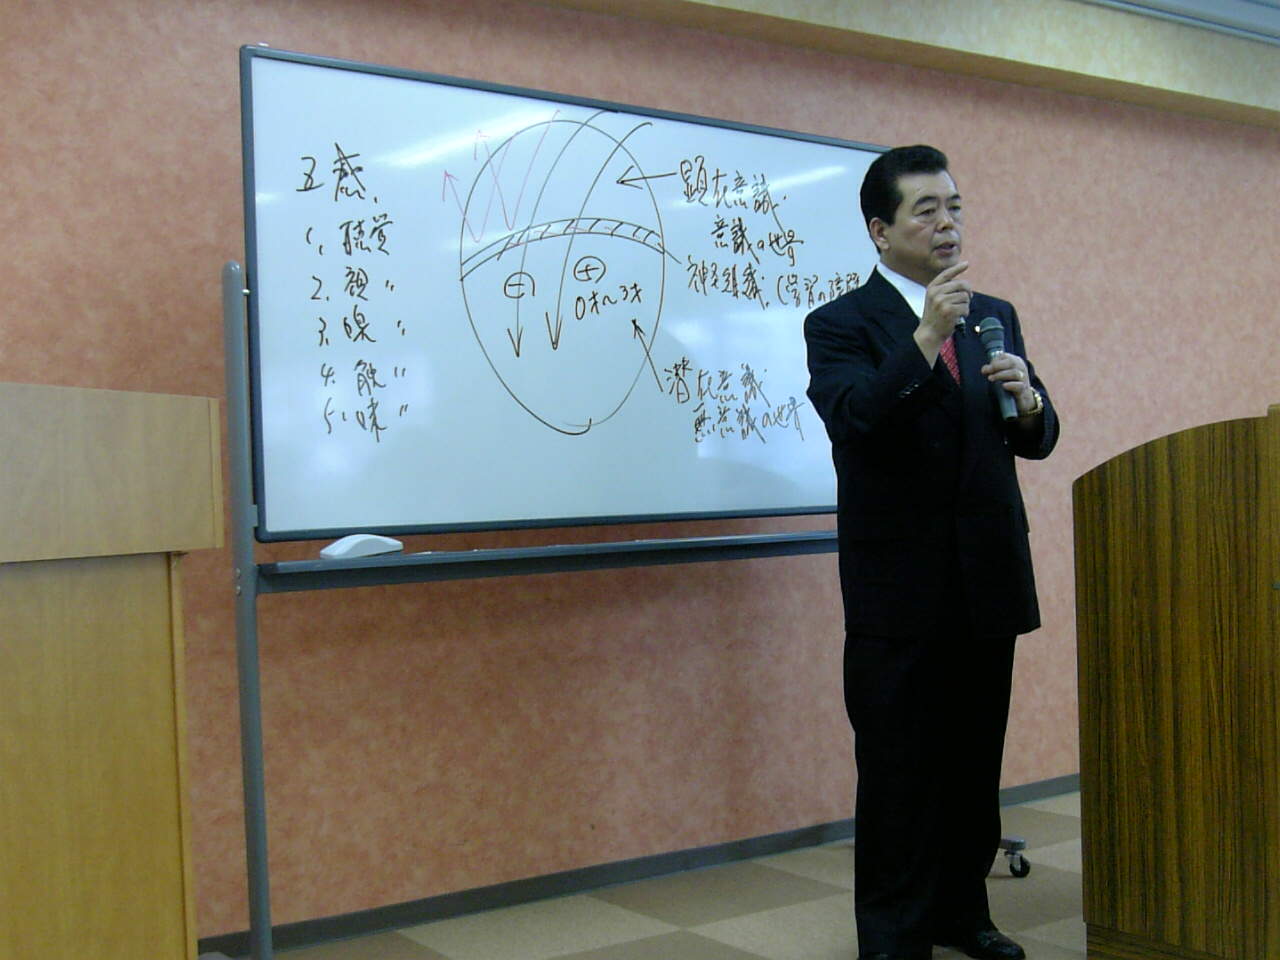 五感、
1. 聴覚
2. 視〃
3. 臭〃
4. 触〃
5. 味〃
⊖ ⊕
0才〜3才
顕在意識・
意識の世界
神経組織、(学習の障
潜在意識・
無意識の世界